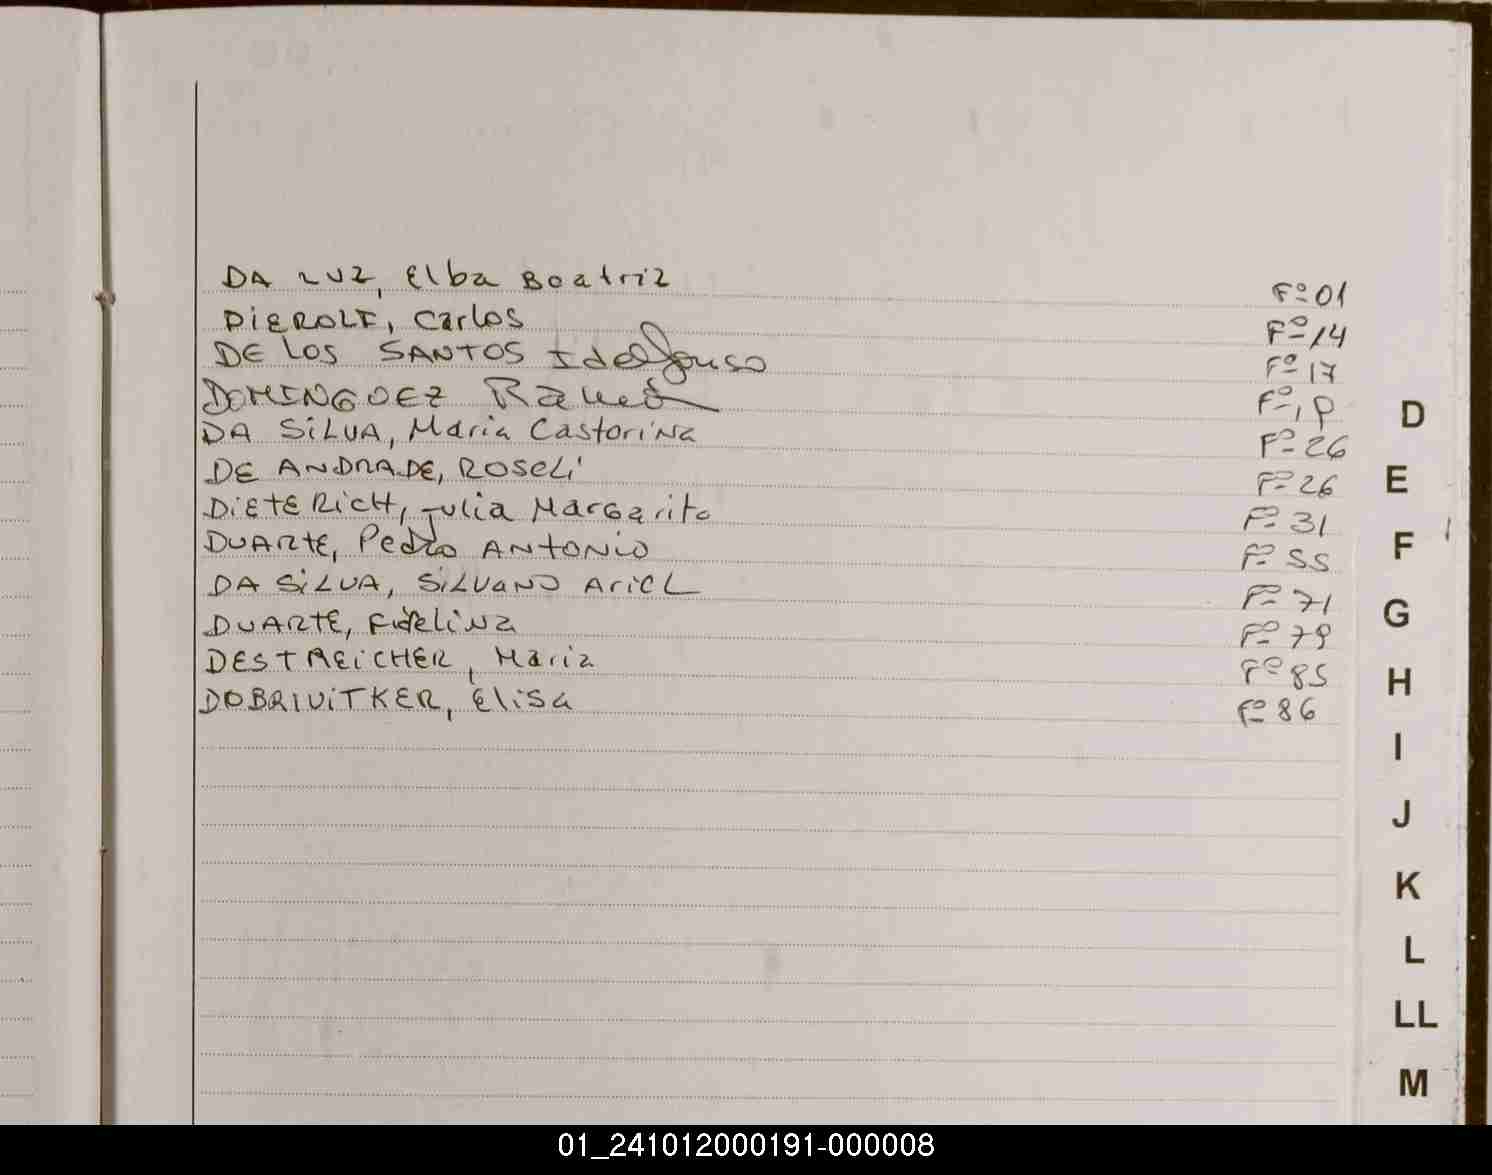 DA LUZ, Elba Beatriz Fº 01
DIEROLF, Carlos Fº 14
DE LOS SANTOS Idelfonso Fº 17
DOMINGUEZ Ramón Fº 19
DA SILVA, Maria Castorina Fº 26
DE ANDRADE, ROSELI Fº 26
DIETERICH, Julia Margarita Fº 31
DUARTE, Pedro ANTONIO Fº 55
DA SILVA, SILVANO ARIEL Fº 71
DUARTE, Fidelina Fº 79
DESTREICHER, Maria Fº 85
DOBRIVITKER, Elisa Fº 86
D
E
F
G
H
I
J
K
L
LL
M
01_241012000191-000008